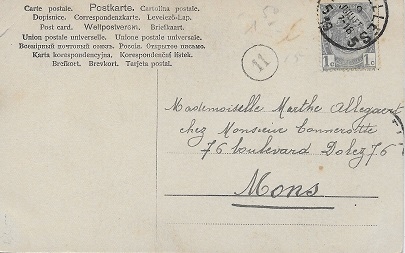 Carte postale. Postkarte. Cartolina postale.
Dopisnice. Correspondenzkarte. Levelező-Lap.
Post card. Weltpostverein. Briefkaart.
Union postale universelle. Unione postale universale.
Всемірный почтовый союзъ. Россія. Открытое письмо.
Karta korespondencyjna. Korespondenční lístek.
Brefkort. Brevkort. Tarjeta postal.
11
1c 1c
Mademoiselle Marthe Allegaert
chez Monsieur Cannerotte
76 boulevard Dolez 76
Mons